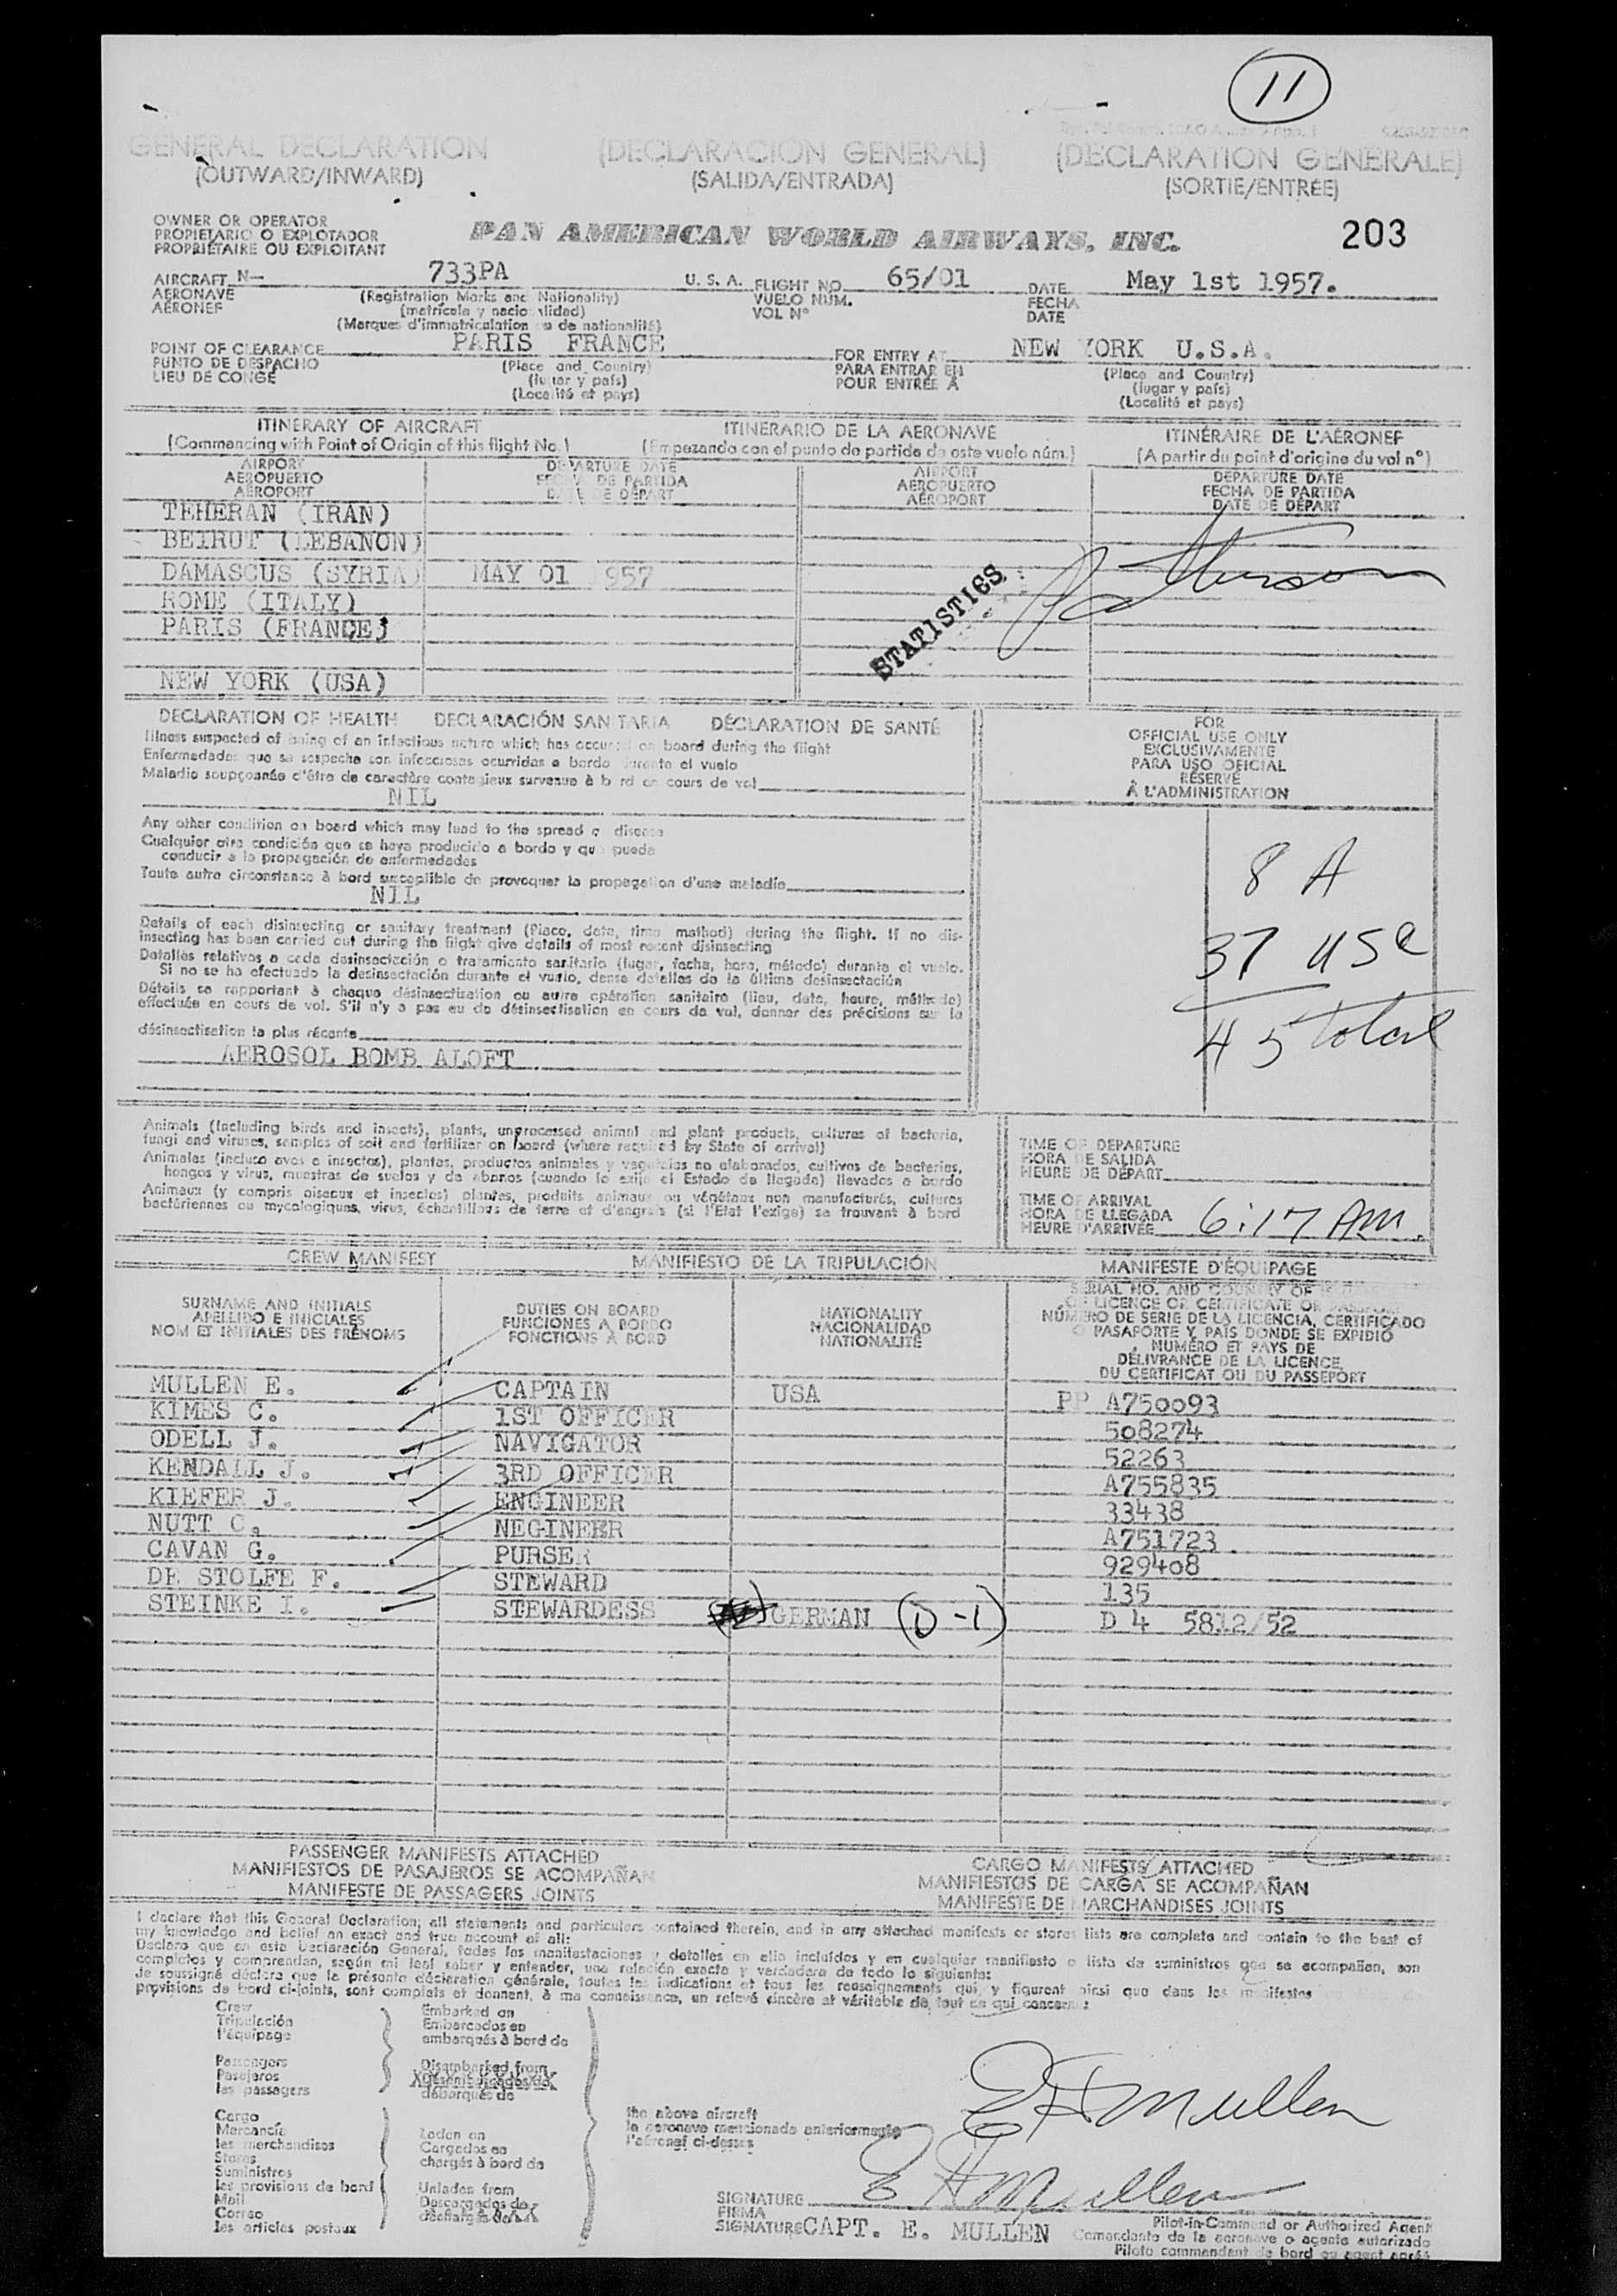 11
GENERAL DECLARATION (DECLARACIÓN GENERAL) (DECLARATION GÉNÉRALE)
(OUTWARD/INWARD) (SALIDA/ENTRADA) (SORTIE/ENTRÉE)
OWNER OR OPERATOR
PROPIETARIO O EXPLOTADOR
PROPRIÉTAIRE OU EXPLOITANT
PAN AMERICAN WORLD AIRWAYS, INC. 203
AIRCRAFT N— 733PA U. S. A. FLIGHT NO. 65/01 DATE May 1st 1957.
AERONAVE (Registration Marks and Nationality) VUELO NÚM. FECHA
AÉRONEF (matrícula y nacionalidad) VOL Nº DATE
(Marques d'immatriculation ou de nationalité)
POINT OF CLEARANCE PARIS FRANCE FOR ENTRY AT NEW YORK U.S.A.
PUNTO DE DESPACHO (Place and Country) PARA ENTRAR EN (Place and Country)
LIEU DE CONGÉ (lugar y país) POUR ENTRÉE À (lugar y país)
(Localité et pays) (Localité et pays)
ITINERARY OF AIRCRAFT ITINERARIO DE LA AERONAVE ITINÉRAIRE DE L'AÉRONEF
(Commencing with Point of Origin of this flight No.) (Empezando con el punto de partida de este vuelo núm.) (A partir du point d'origine du vol nº)
AIRPORT DEPARTURE DATE AIRPORT DEPARTURE DATE
AEROPUERTO FECHA DE PARTIDA AEROPUERTO FECHA DE PARTIDA
AÉROPORT DATE DE DÉPART AÉROPORT DATE DE DÉPART
TEHERAN (IRAN)
BEIRUT (LEBANON)
DAMASCUS (SYRIA) MAY 01 1957
ROME (ITALY)
PARIS (FRANCE)
STATISTICS
NEW YORK (USA)
DECLARATION OF HEALTH DECLARACIÓN SANITARIA DÉCLARATION DE SANTÉ
Illness suspected of being of an infectious nature which has occurred on board during the flight
Enfermedades que se sospecha son infecciosas ocurridas a bordo durante el vuelo
Maladie soupçonnée d'être de caractère contagieux survenue à bord en cours de vol
NIL
FOR
OFFICIAL USE ONLY
EXCLUSIVAMENTE
PARA USO OFICIAL
RÉSERVÉ
À L'ADMINISTRATION
Any other condition on board which may lead to the spread of disease
Cualquier otra condición que se haya producido a bordo y que pueda
conducir a la propagación de enfermedades
Toute autre circonstance à bord susceptible de provoquer la propagation d'une maladie
NIL
8 A
37 USC
45 total
Details of each disinsecting or sanitary treatment (Place, date, time method) during the flight. If no dis-
insecting has been carried out during the flight give details of most recent disinsecting
Detalles relativos a cada desinsectación o tratamiento sanitario (lugar, fecha, hora, método) durante el vuelo.
Si no se ha efectuado la desinsectación durante el vuelo, dense detalles de la última desinsectación
Détails se rapportant à chaque désinsectisation ou autre opération sanitaire (lieu, date, heure, méthode)
effectuée en cours de vol. S'il n'y a pas eu de désinsectisation en cours de vol, donner des précisions sur la
désinsectisation la plus récente
AEROSOL BOMB ALOFT
Animals (Including birds and insects), plants, unprocessed animal and plant products, cultures of bacteria,
fungi and viruses, samples of soil and fertilizer on board (where required by State of arrival)
Animales (incluso aves e insectos), plantas, productos animales y vegetales no elaborados, cultivos de bacterias,
hongos y virus, muestras de suelos y de abonos (cuando lo exija el Estado de llegada) llevados a bordo
Animaux (y compris oiseaux et insectes) plantes, produits animaux ou végétaux non manufacturés, cultures
bactériennes ou mycologiques, virus, échantillons de terre et d'engrais (si l'Etat l'exige) se trouvant à bord
TIME OF DEPARTURE
HORA DE SALIDA
HEURE DE DÉPART
TIME OF ARRIVAL
HORA DE LLEGADA
HEURE D'ARRIVÉE 6:17 AM
CREW MANIFEST MANIFIESTO DE LA TRIPULACIÓN MANIFESTE D'ÉQUIPAGE
SURNAME AND INITIALS
APELLIDO E INICIALES
NOM ET INITIALES DES PRÉNOMS
DUTIES ON BOARD
FUNCIONES A BORDO
FONCTIONS À BORD
NATIONALITY
NACIONALIDAD
NATIONALITÉ
SERIAL NO. AND COUNTRY OF
OF LICENCE OR CERTIFICATE OR PASSPORT
NÚMERO DE SERIE DE LA LICENCIA, CERTIFICADO
O PASAPORTE Y PAÍS DONDE SE EXPIDIÓ
NUMÉRO ET PAYS DE
DÉLIVRANCE DE LA LICENCE,
DU CERTIFICAT OU DU PASSEPORT
MULLEN E. CAPTAIN USA PP A750093
KIMES C. 1ST OFFICER 508274
ODELL J. NAVIGATOR 52263
KENDALL J. 3RD OFFICER A755835
KIEFER J. ENGINEER 33438
NUTT C. NEGINEER A751723
CAVAN G. PURSER 929408
DE STOLFE F. STEWARD 135
STEINKE I. STEWARDESS GERMAN (D-1) D 4 5812/52
PASSENGER MANIFESTS ATTACHED
MANIFIESTOS DE PASAJEROS SE ACOMPAÑAN
MANIFESTE DE PASSAGERS JOINTS
CARGO MANIFESTS ATTACHED
MANIFIESTOS DE CARGA SE ACOMPAÑAN
MANIFESTE DE MARCHANDISES JOINTS
I declare that this General Declaration; all statements and particulars contained therein, and in any attached manifests or stores lists are complete and contain to the best of
my knowledge and belief an exact and true account of all:
Declaro que en esta Declaración General, todas las manifestaciones y detalles en ella incluídos y en cualquier manifiesto o lista de suministros que se acompañan, son
completos y comprenden, según mi leal saber y entender, una relación exacta y verdadera de todo lo siguiente:
Je soussigné déclare que la présente déclaration générale, toutes les indications et tous les renseignements qui y figurent ainsi que dans les manifestes
provisions de bord ci-joints, sont complets et donnent, à ma connaissance, un relevé sincère et véritable de tout ce qui concerne:
Crew
Tripulación
l'équipage
Passengers
Pasajeros
les passagers
Cargo
Mercancía
les merchandises
Stores
Suministros
les provisions de bord
Mail
Correo
les articles postaux
Embarked on
Embarcados en
embarqués à bord de
Disembarked from
Desembarcados de
débarqués de
Laden on
Cargados en
chargés à bord de
Unladen from
Descargados de
déchargés de
the above aircraft
la aeronave mencionada anteriormente
l'aéronef ci-dessus
E H Mullen
SIGNATURE E H Mullen
FIRMA
SIGNATURE CAPT. E. MULLEN
Pilot-in-Command or Authorized Agent
Comandante de la aeronave o agente autorizado
Pilote commandant de bord ou agent agréé